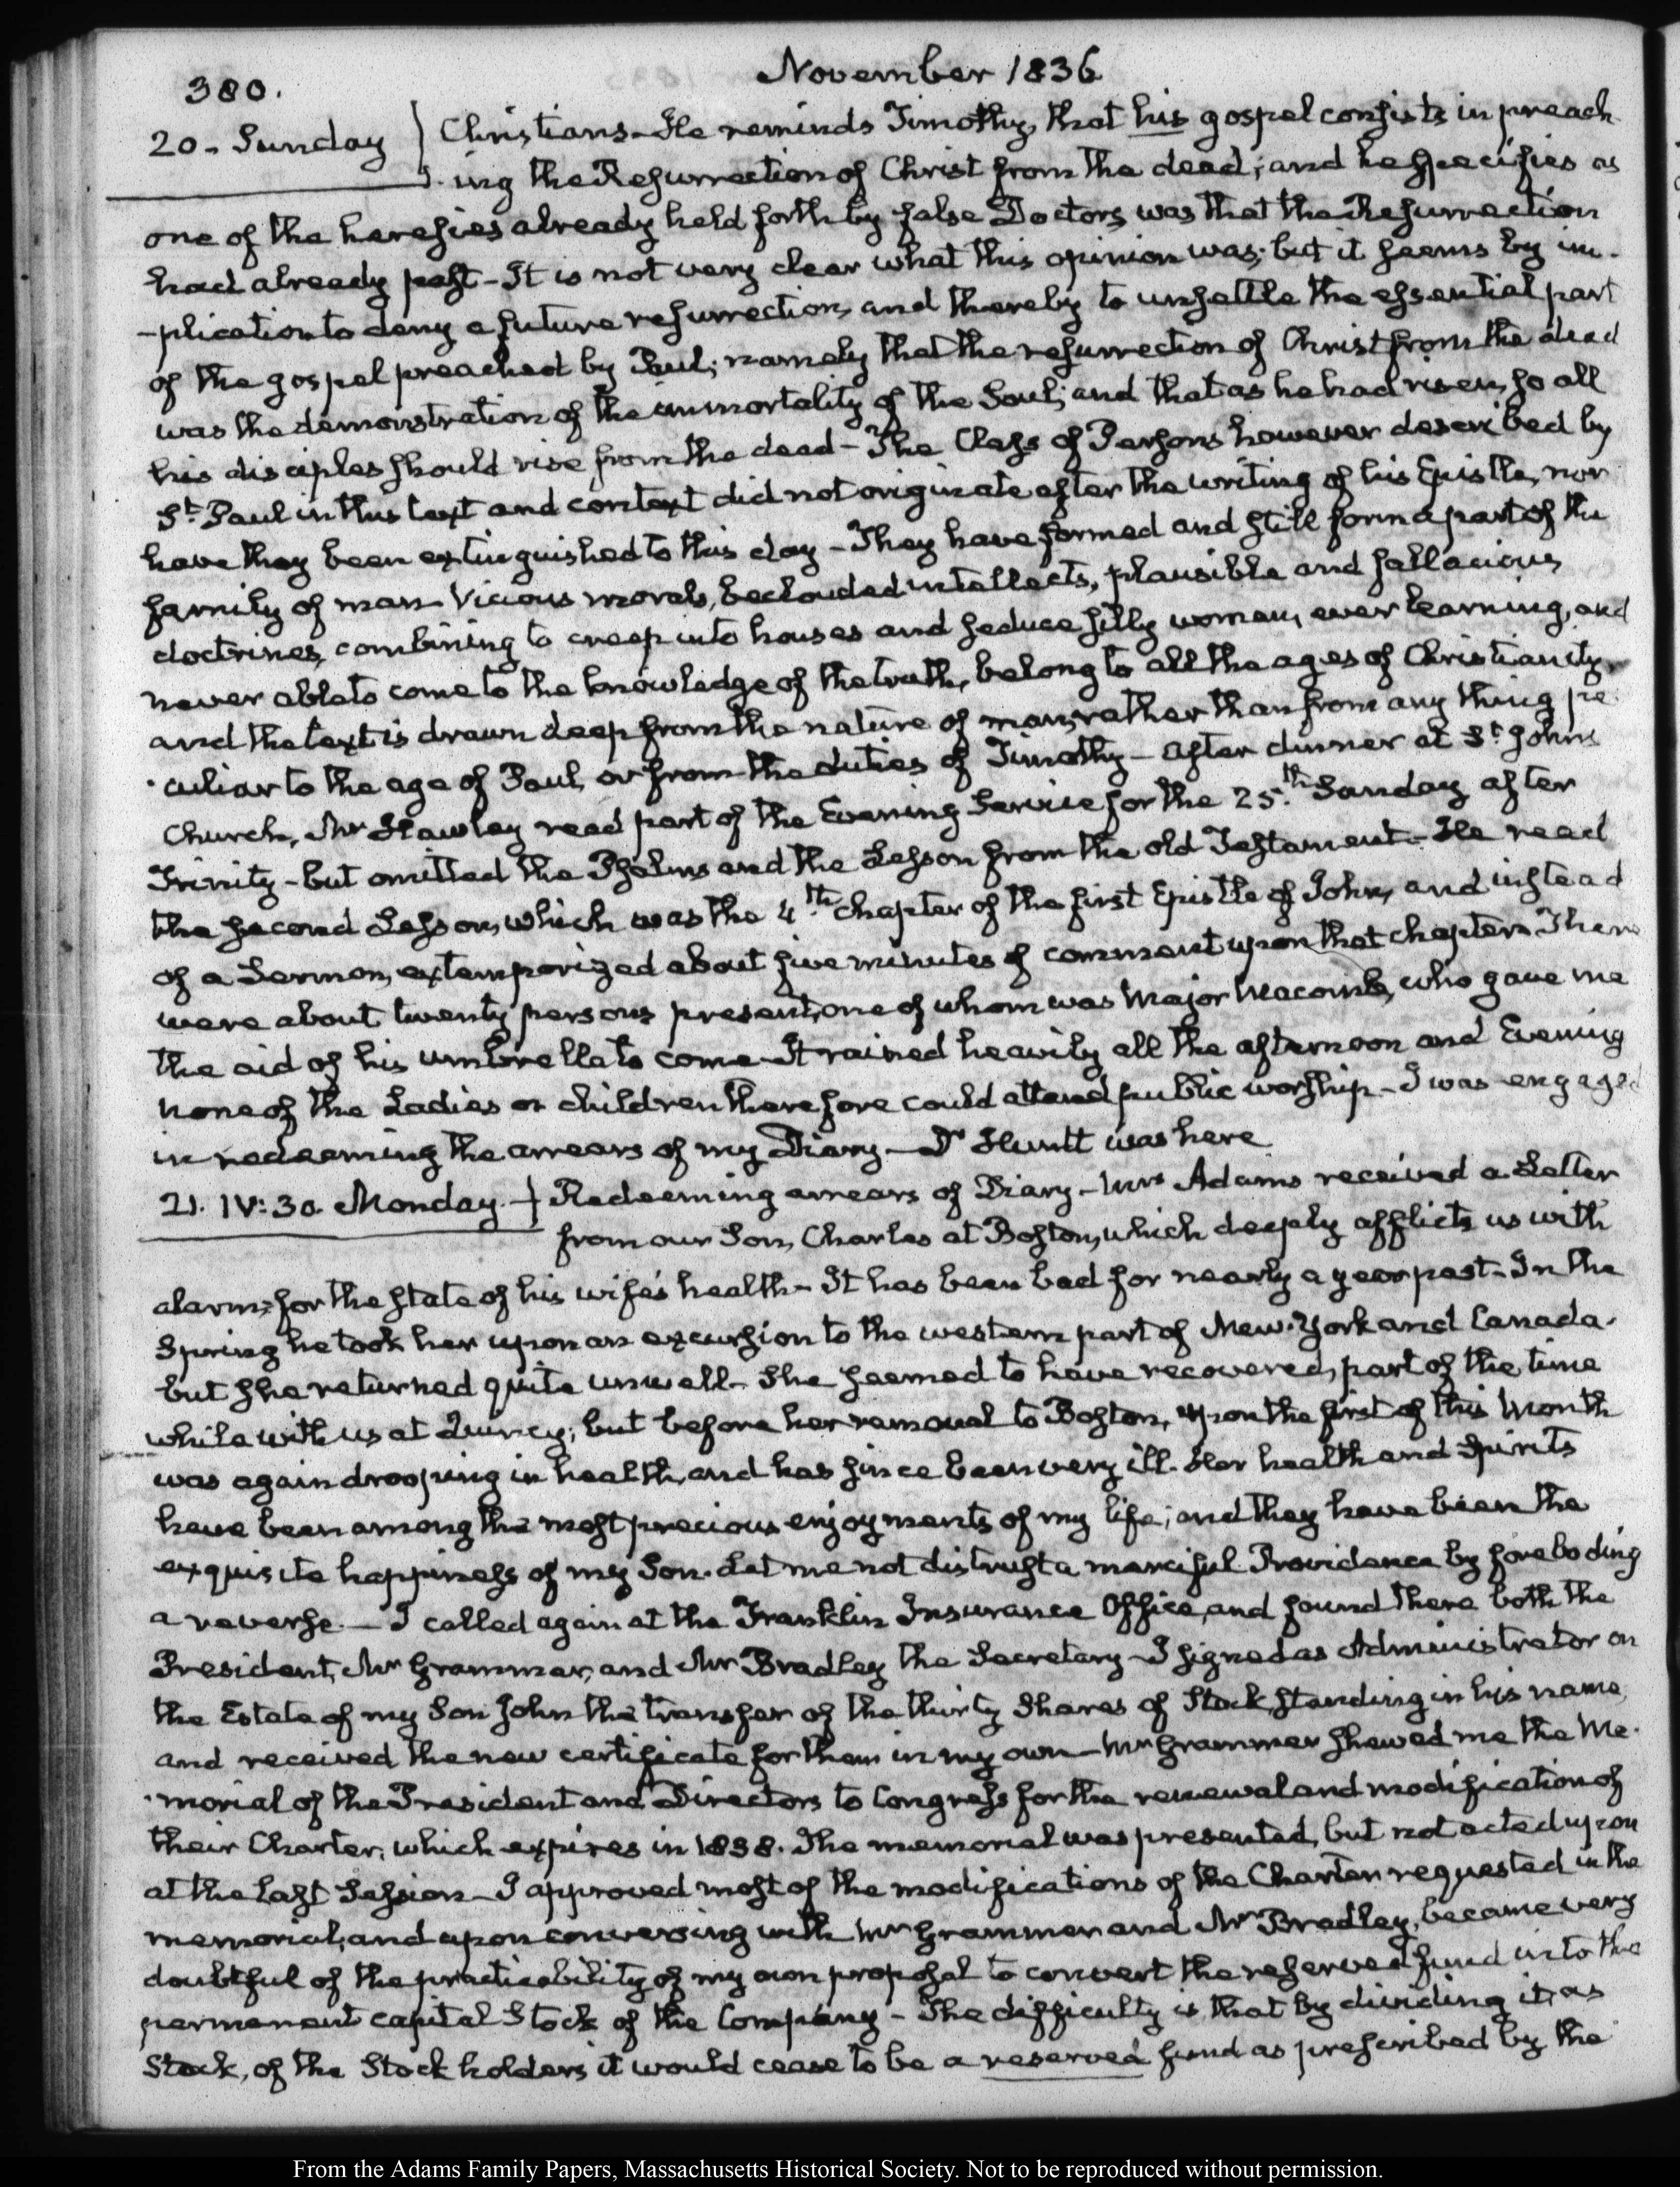 380.
November 1836
20. Sunday } Christians - He reminds Timothy, that his gospel consists in preach
ing the Resurrection of Christ from the dead; and he specifies as
one of the heresies already held forth by false Doctors, was that the Resurrection
had already past - It is not very clear what this opinion was; but it seems by im-
-plication to deny a future resurrection, and thereby to unsettle the essential part
of the gospel preached by Paul; namely that the resurrection of Christ from the dead
was the demonstration of the immortality of the Soul; and that as he had risen, so all
his disciples should rise from the dead - The Class of Persons however described by
St. Paul in this text and context did not originate after the writing of his Epistle, nor
have they been extinguished to this day - They have formed and still form a part of the
family of man - Vicious morals, beclouded intellects, plausible and fallacious
doctrines, combining to creep into houses and seduce silly women, ever learning, and
never able to come to the knowledge of the truth, belong to all the ages of Christianity
and the text is drawn deep from the nature of man, rather than from any thing pe-
-culiar to the age of Paul, or from the duties of Timothy - After dinner at St. Johns
Church, Mr Hawley read part of the Evening Service for the 25th. Sunday after
Trinity - but omitted the Psalms and the Lesson from the old Testament - He read
the second Lesson, which was the 4th. chapter of the first Epistle of John, and instead
of a Sermon, extemporized about five minutes of comment upon that chapter. There
were about twenty persons present, one of whom was Major Macomb, who gave me
the aid of his umbrella to come - It rained heavily all the afternoon and Evening
none of the Ladies or children therefore could attend public worship - I was engaged
in redeeming the arrears of my Diary - Dr Huntt was here
21. IV:30. Monday. } Redeeming arrears of Diary - Mrs Adams received a Letter
from our Son, Charles at Boston, which deeply afflicts us with
alarm, for the state of his wife's health - It has been bad for nearly a year past - In the
Spring he took her upon an excursion to the western part of New-York and Canada.
but she returned quite unwell - She seemed to have recovered, part of the time
while with us at Quincy; but before her removal to Boston, upon the first of this Month
was again drooping in health, and has since been very ill. Her health and Spirits
have been among the most precious enjoyments of my life; and they have been the
exquisite happiness of my Son. Let me not distrust a merciful Providence by foreboding
a reverse. - I called again at the Franklin Insurance Office, and found there both the
President, Mr Grammer, and Mr Bradley the Secretary - I signed as Administrator on
the Estate of my Son John the transfer of the thirty Shares of Stock, standing in his name,
and received the new certificate for them in my own - Mr Grammer shewed me the Me-
-morial of the President and Directors to Congress for the renewal and modification of
their Charter, which expires in 1838. The memorial was presented, but not acted upon
at the last Session - I approved most of the modifications of the Charter requested in the
memorial, and upon conversing with Mr Grammer and Mr Bradley, became very
doubtful of the practicability of my own proposal to convert the reserved fund into the
permanent capital Stock of the Company - The difficulty is that by dividing it, as
Stock, of the Stockholders it would cease to be a reserved fund as prescribed by the
From the Adams Family Papers, Massachusetts Historical Society. Not to be reproduced without permission.